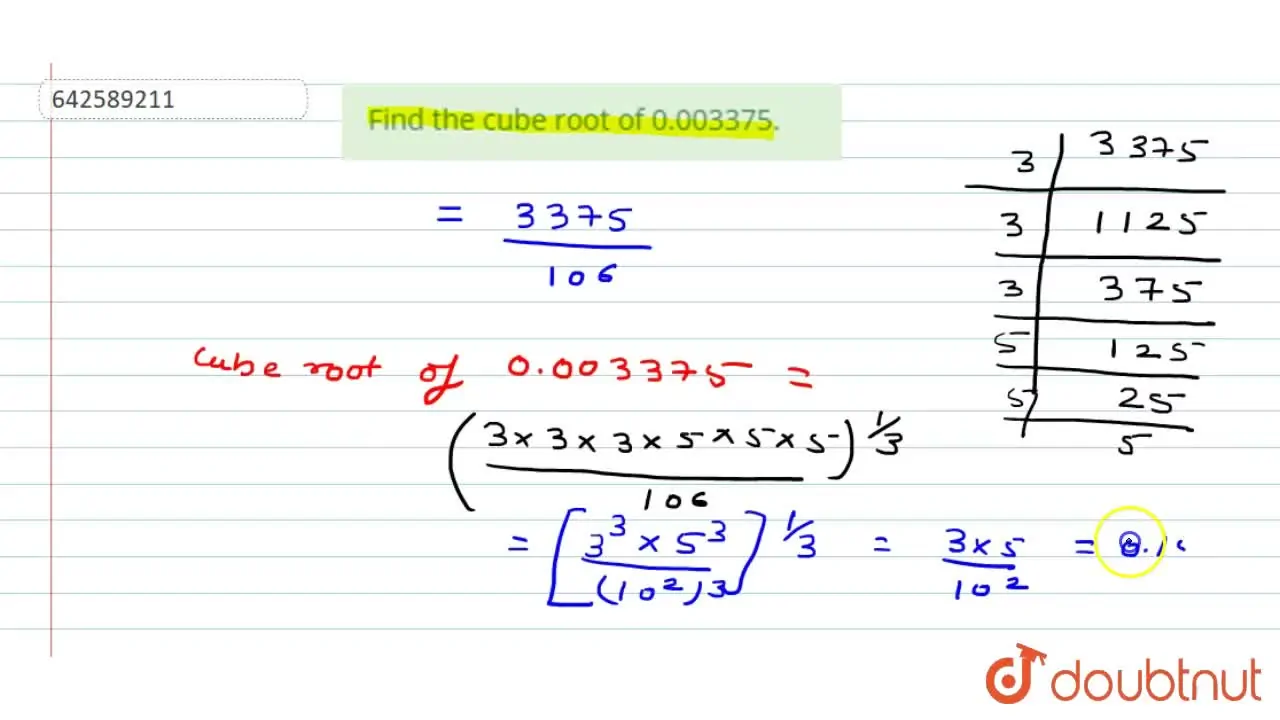 642589211
Find the cube root of 0.003375.
= 3375/106
cube root of 0.003375 =
(3×3×3×5×5×5/106)^1/3
= [3³×5³/(10²)3]^1/3 = 3×5/10² = 0.1
3 | 3375
3 | 1125
3 | 375
5 | 125
5 | 25
5
doubtnut